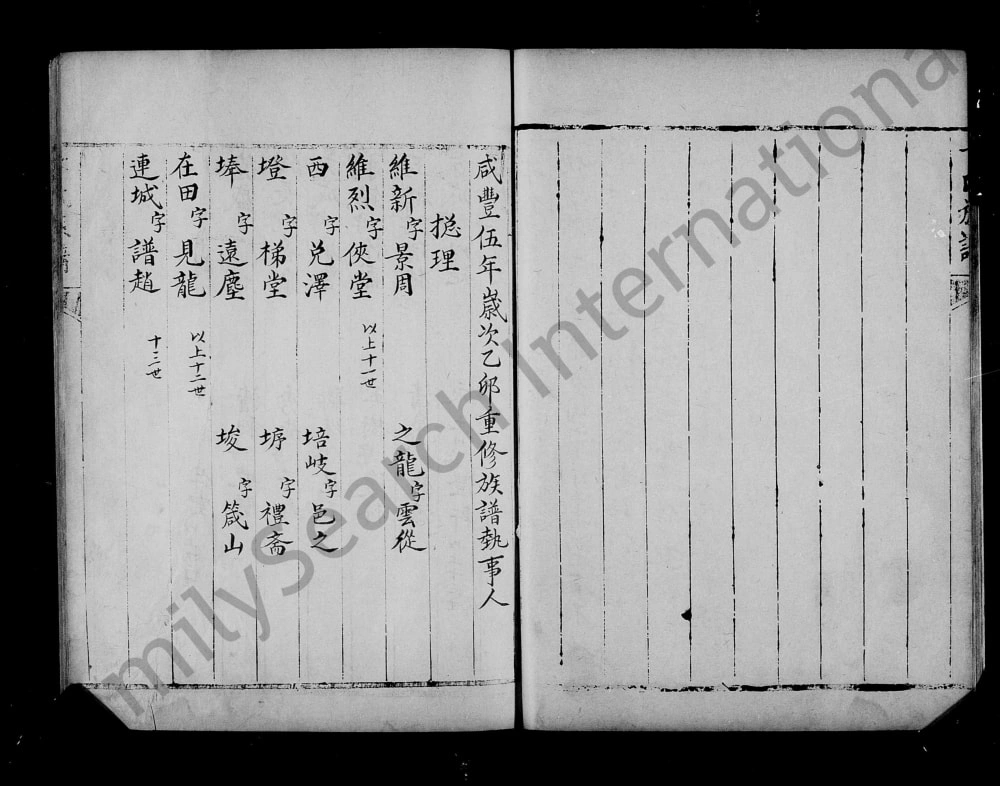 咸豐伍年歲次乙卯重修族譜執事人
捴理
維新字景周 之龍字雲從
維烈字俠堂 以上十一世
西字兌澤 培岐字邑之
墱字梯堂 垿字禮斋
埲字遠塵 埈字箴山
在田字見龍 以上十二世
連城字譜趙 十三世
FamilySearch International